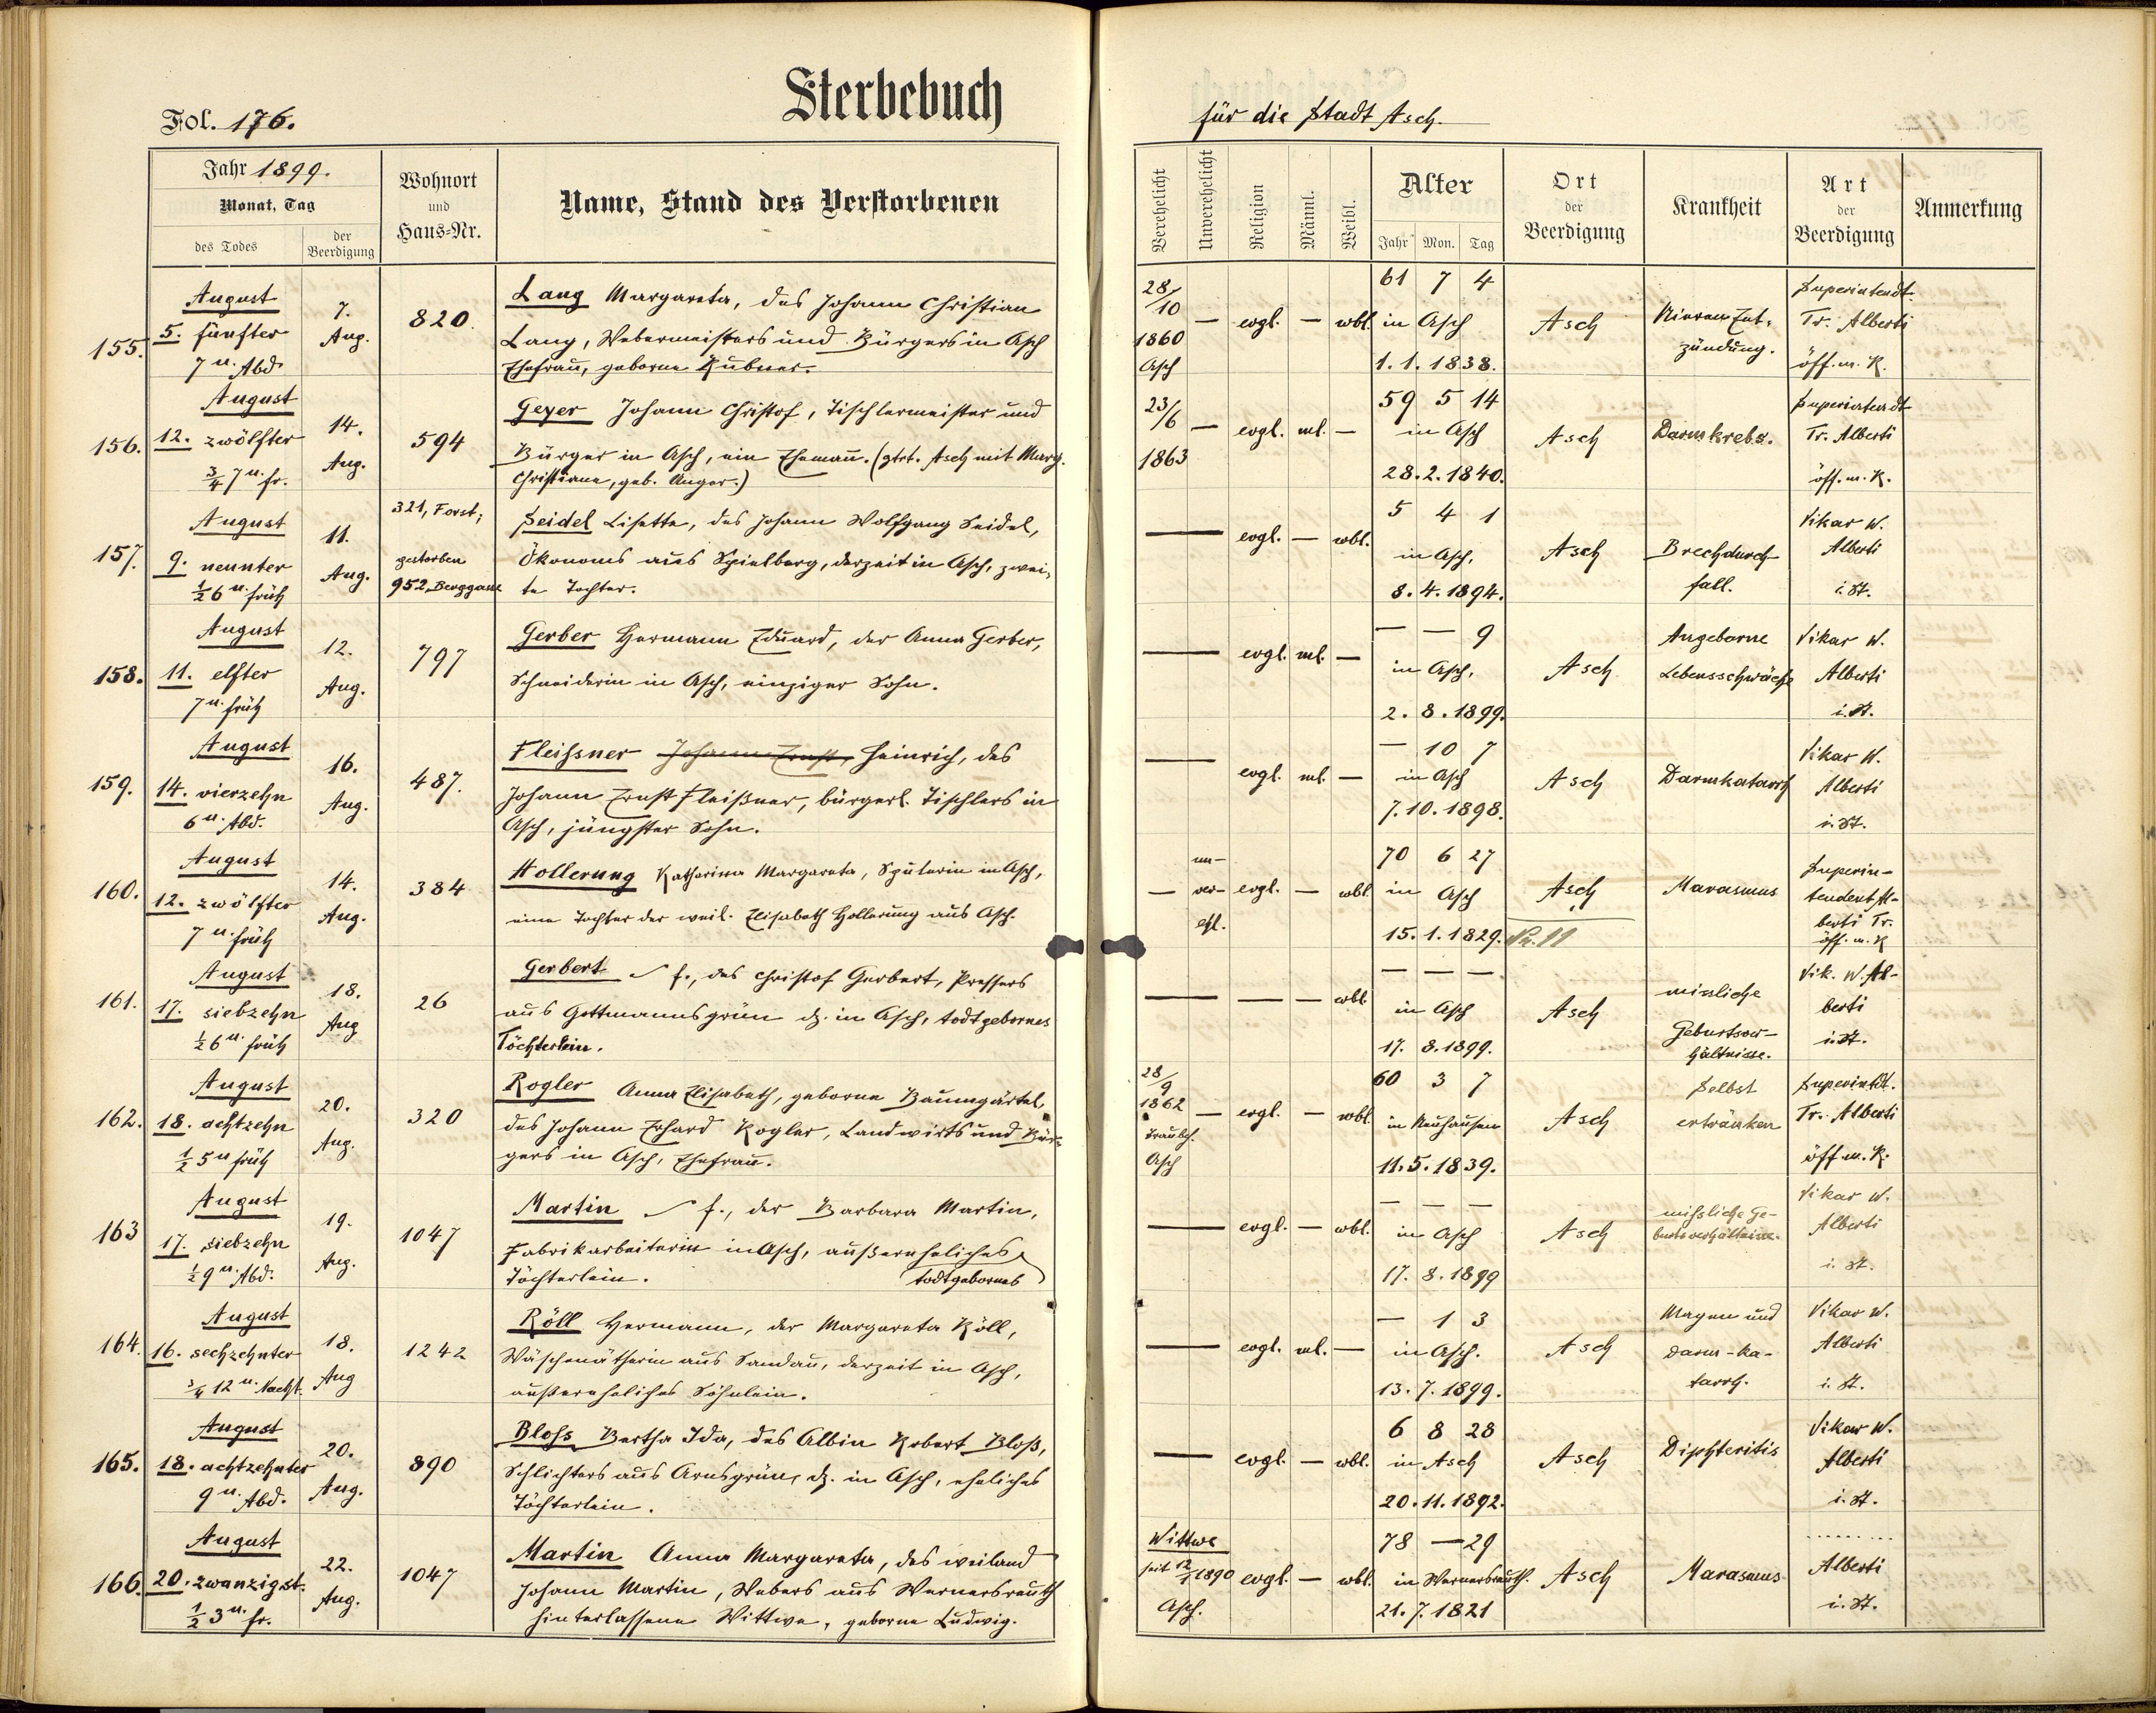 Fol. 176.
Sterbebuch
für die Stadt Asch.
Jahr 1899.
Monat, Tag
des Todes
der
Beerdigung
Wohnort
und
Haus-Nr.
Name, Stand des Verstorbenen
Verehelicht
Unverehelicht
Religion
Männl.
Weibl.
Alter
Jahr Mon. Tag
Ort
der
Beerdigung
Krankheit
Art
der
Beerdigung
Anmerkung
155.
August
5. fünfter
7 u. Abd.
7.
Aug.
820.
Lang Margareta, des Johann Christian
Lang, Webermeisters und Bürgers in Asch
Ehefrau, geborne Kübner.
28/10
1860
Asch
— evgl. — wbl.
61 7 4
in Asch
1.1.1838.
Asch
Nieren Ent-
zündung.
Superintendt.
Tr. Alberti
öff. m. K.
156.
August
12. zwölfter
3/4 7 u. fr.
14.
Aug.
594
Geyer Johann Christof, Tischlermeister und
Bürger in Asch, ein Ehemann. (gtrt. Asch mit Marg.
Christiane, geb. Anger.)
23/6
1863
— evgl. ml. —
59 5 14
in Asch
28.2.1840.
Asch
Darmkrebs.
Superintendt
Tr. Alberti
öff. m. K.
157.
August
9. neunter
1/2 6 u. früh
11.
Aug.
321, Forst;
gestorben
952, Berggasse
Seidel Lisette, des Johann Wolfgang Seidel,
Ökonoms aus Spielberg, derzeit in Asch, zwei-
te Tochter.
— evgl. — wbl.
5 4 1
in Asch,
8.4.1894.
Asch
Brechdurch-
fall.
Vikar W.
Alberti
i. St.
158.
August
11. elfter
7 u. früh
12.
Aug.
797
Gerber Hermann Eduard, der Anna Gerber,
Schneiderin in Asch, einziger Sohn.
— evgl. ml. —
— — 9
in Asch,
2.8.1899.
Asch
Angeborne
Lebensschwäche
Vikar W.
Alberti
i. St.
159.
August
14. vierzehn
6 u. Abd.
16.
Aug.
487.
Fleißner Johann Ernst, Heinrich, des
Johann Ernst Fleißner, bürgerl. Tischlers in
Asch, jüngster Sohn.
— evgl. ml. —
— 10 7
in Asch
7.10.1898.
Asch
Darmkatarrh
Vikar W.
Alberti
i. St.
160.
August
12. zwölfter
7 u. früh
14.
Aug.
384
Hollerung Katharina Margareta, Spulerin in Asch,
eine Tochter der weil. Elisabeth Hollerung aus Asch.
un-
— ver- evgl. — wbl.
ehl.
70 6 27
in Asch
15.1.1829.
Asch
Marasmus
Superin-
tendent Al-
berti Tr.
öff. m. K
161.
August
17. siebzehn
1/2 6 u. früh
18.
Aug
26
Gerbert f., des Christof Gerbert, Pressers
aus Gottmannsgrün dz. in Asch, todtgebornes
Töchterlein.
— — — wbl.
— — —
in Asch
17.8.1899.
Asch
missliche
Geburtsver-
hältnisse.
Vik. W. Al-
berti
i. St.
162.
August
18. achtzehn
1/2 5 u früh
20.
Aug.
320
Rogler Anna Elisabeth, geborne Baumgärtel,
des Johann Erhard Rogler, Landwirts und Bür-
gers in Asch, Ehefrau.
28/9
1862
Asch
— evgl. — wbl.
60 3 7
in Neuhausen
11.5.1839.
Asch
Selbst
ertränken
Superintdt.
Tr. Alberti
öff m. K.
163
August
17. siebzehn
1/2 9 u. Abd.
19.
Aug.
1047
Martin f., der Barbara Martin,
Fabrikarbeiterin in Asch, außereheliches
Töchterlein. todtgebornes
— evgl. — wbl.
— — —
in Asch
17.8.1899
Asch
mißliche Ge-
burtsverhältnisse.
Vikar W.
Alberti
i. St.
164.
August
16. sechzehnter
3/4 12 u. Nacht.
18.
Aug
1242
Röll Hermann, der Margareta Röll,
Wäschenätherin aus Sandau, derzeit in Asch,
außereheliches Söhnlein.
— evgl. ml. —
— 1 3
in Asch.
13.7.1899.
Asch
Magen und
Darm-ka-
tarrh.
Vikar W.
Alberti
i. St.
165.
August
18. achtzehnter
9 u. Abd.
20.
Aug.
890
Bloß Bertha Ida, des Albin Robert Bloß,
Schlichters aus Arnsgrün, dz. in Asch, eheliches
Töchterlein.
— evgl. — wbl.
6 8 28
in Asch
20.11.1892.
Asch
Diphteritis
Vikar W.
Alberti
i. St.
166.
August
20. zwanzigst.
1/2 3 u. fr.
22.
Aug.
1047
Martin Anna Margareta, des weiland
Johann Martin, Webers aus Wernersreuth
hinterlassene Wittwe, geborne Ludwig.
Wittwe
seit 12/1 1890
Asch.
evgl. — wbl.
78 — 29
in Wernersreuth.
21.7.1821
Asch
Marasmus
..........
Alberti
i. St.